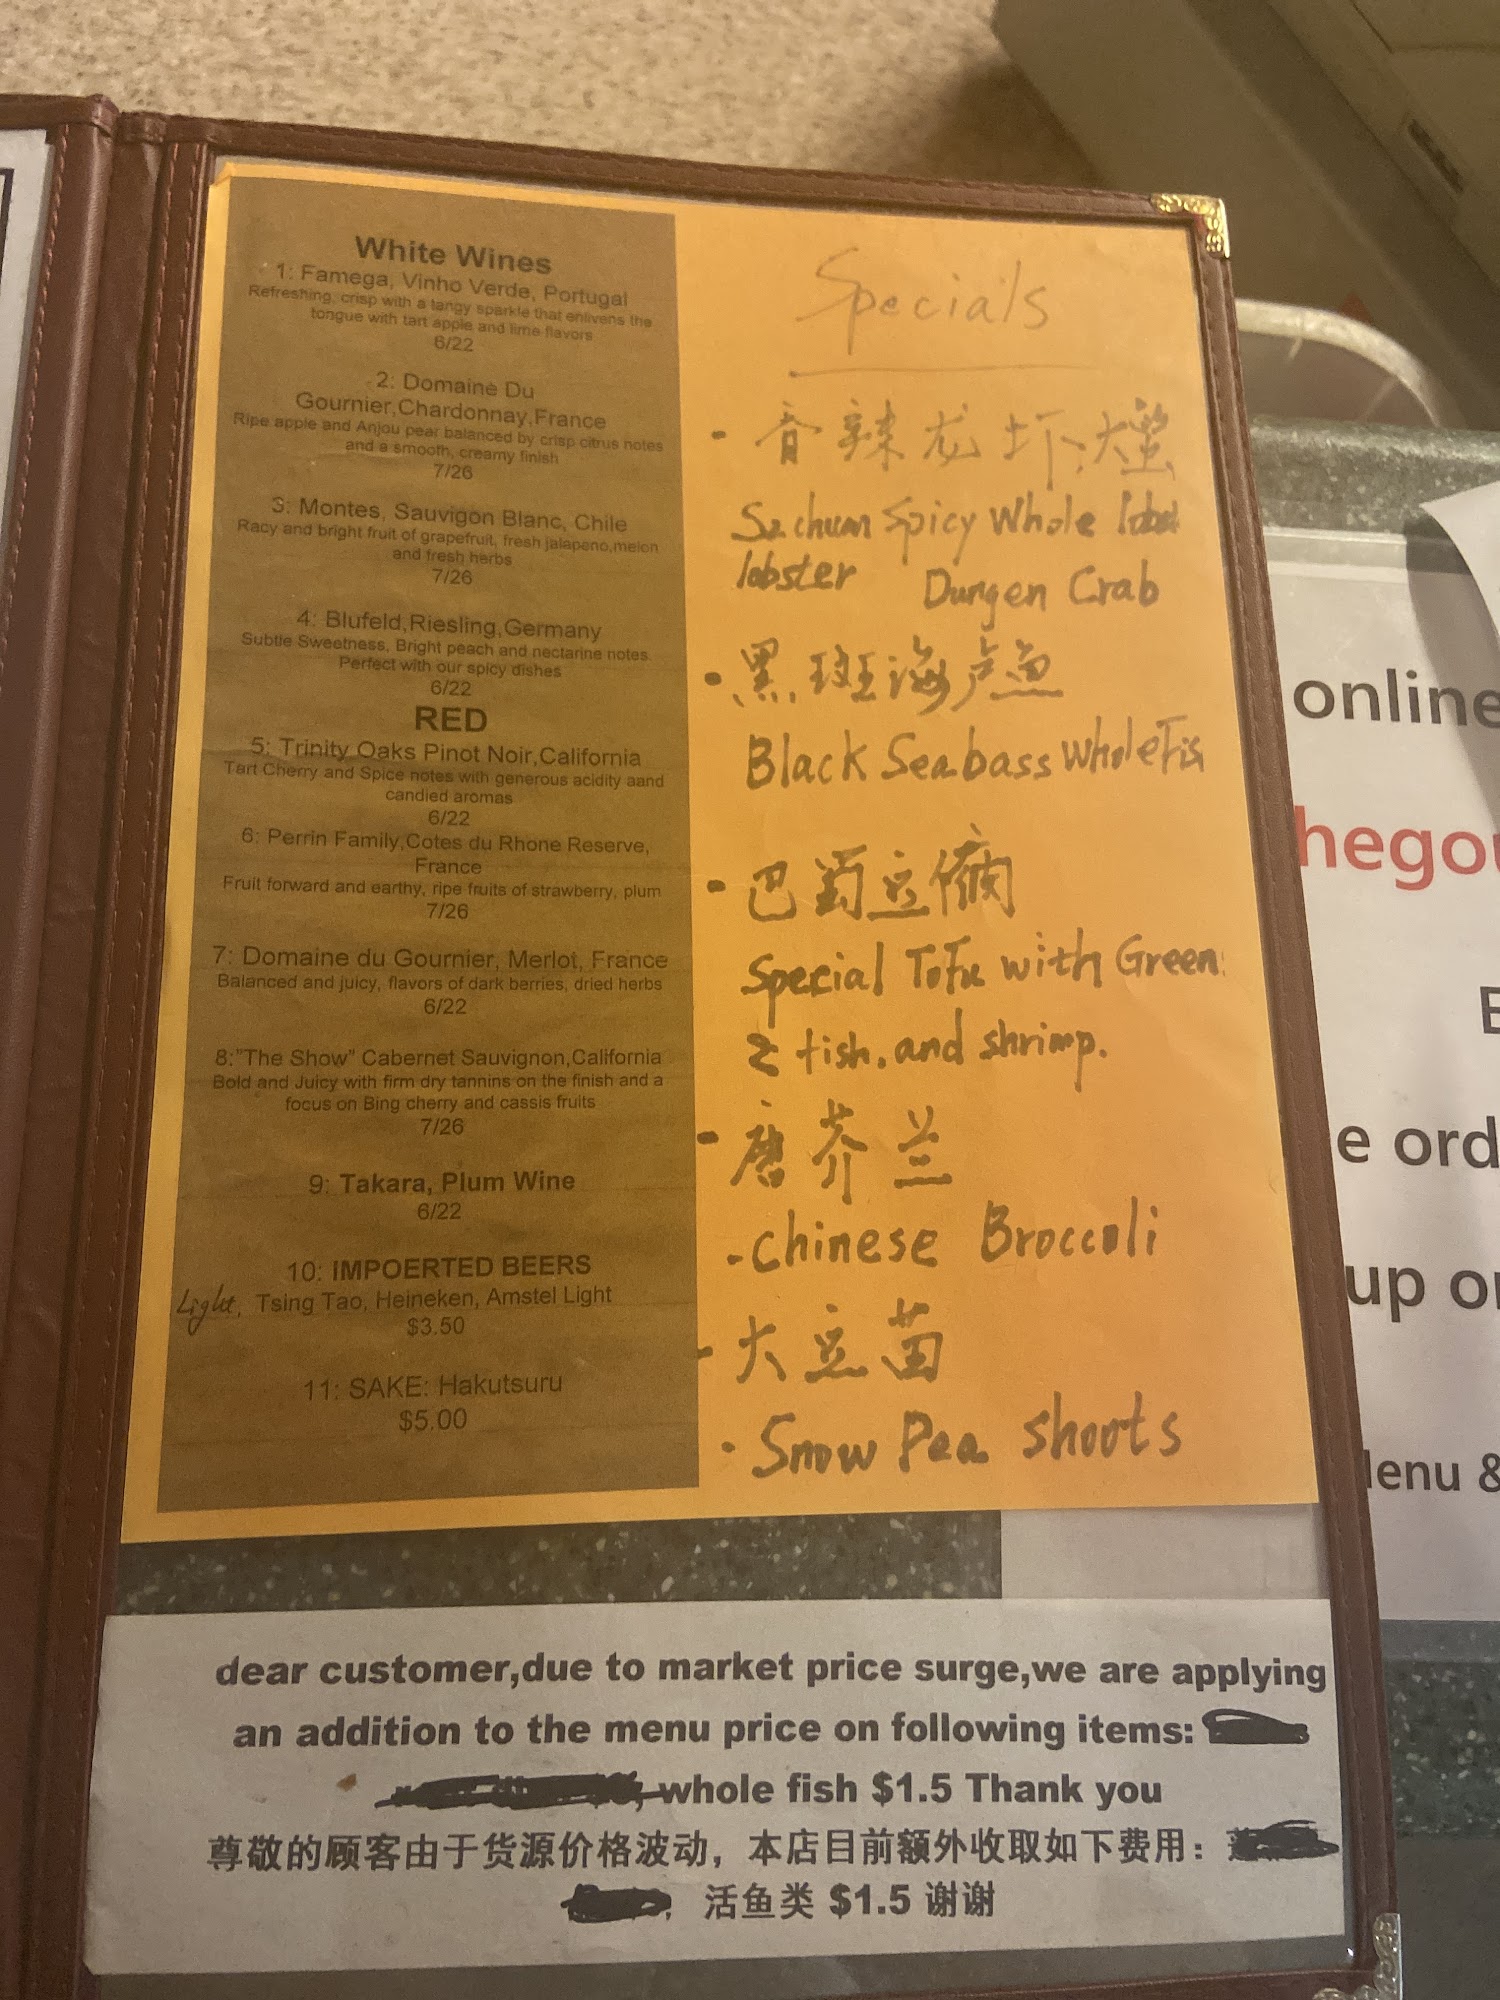 White Wines
1: Famega, Vinho Verde, Portugal
Refreshing, crisp with a tangy sparkle that enlivens the
tongue with tart apple and lime flavors
6/22
2: Domaine Du
Gournier,Chardonnay,France
Ripe apple and Anjou pear balanced by crisp citrus notes
and a smooth, creamy finish
7/26
3: Montes, Sauvigon Blanc, Chile
Racy and bright fruit of grapefruit, fresh jalapeno,melon
and fresh herbs
7/26
4: Blufeld,Riesling,Germany
Subtle Sweetness, Bright peach and nectarine notes.
Perfect with our spicy dishes
6/22
RED
5: Trinity Oaks Pinot Noir,California
Tart Cherry and Spice notes with generous acidity aand
candied aromas
6/22
6: Perrin Family,Cotes du Rhone Reserve,
France
Fruit forward and earthy, ripe fruits of strawberry, plum
7/26
7: Domaine du Gournier, Merlot, France
Balanced and juicy, flavors of dark berries, dried herbs
6/22
8:"The Show" Cabernet Sauvignon,California
Bold and Juicy with firm dry tannins on the finish and a
focus on Bing cherry and cassis fruits
7/26
9: Takara, Plum Wine
6/22
10: IMPOERTED BEERS
Light, Tsing Tao, Heineken, Amstel Light
$3.50
11: SAKE: Hakutsuru
$5.00
Specials
· 香辣龙虾,大蟹
Sechuan Spicy Whole
lobster Dungen Crab
· 黑斑海卢鱼
Black Seabass Whole Fis
· 巴蜀豆腐
Special ToFu with Green
fish. and shrimp.
- 唐芥兰
- Chinese Broccoli
- 大豆苗
· Snow Pea Shoots
dear customer,due to market price surge,we are applying
an addition to the menu price on following items:
whole fish $1.5 Thank you
尊敬的顾客由于货源价格波动，本店目前额外收取如下费用：
活鱼类 $1.5 谢谢
online
hego
e ord
up o
enu &